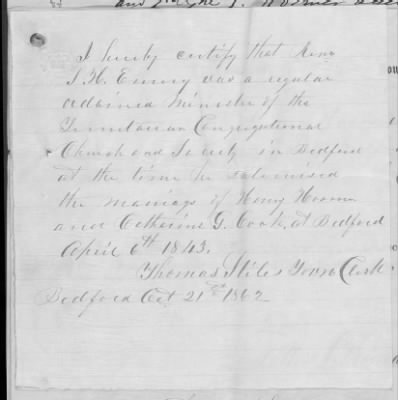 I hereby certify that Revd
J. H. Emery was a regular
ordained minister of the
Trinitarian Congregational
Church and Society in Bedford
at the time he solemnised
the marriage of Henry
and Catherine G. Cook, at Bedford
April 6th 1843.
Thomas Stiles Town Clerk
Bedford Oct 21st 1862